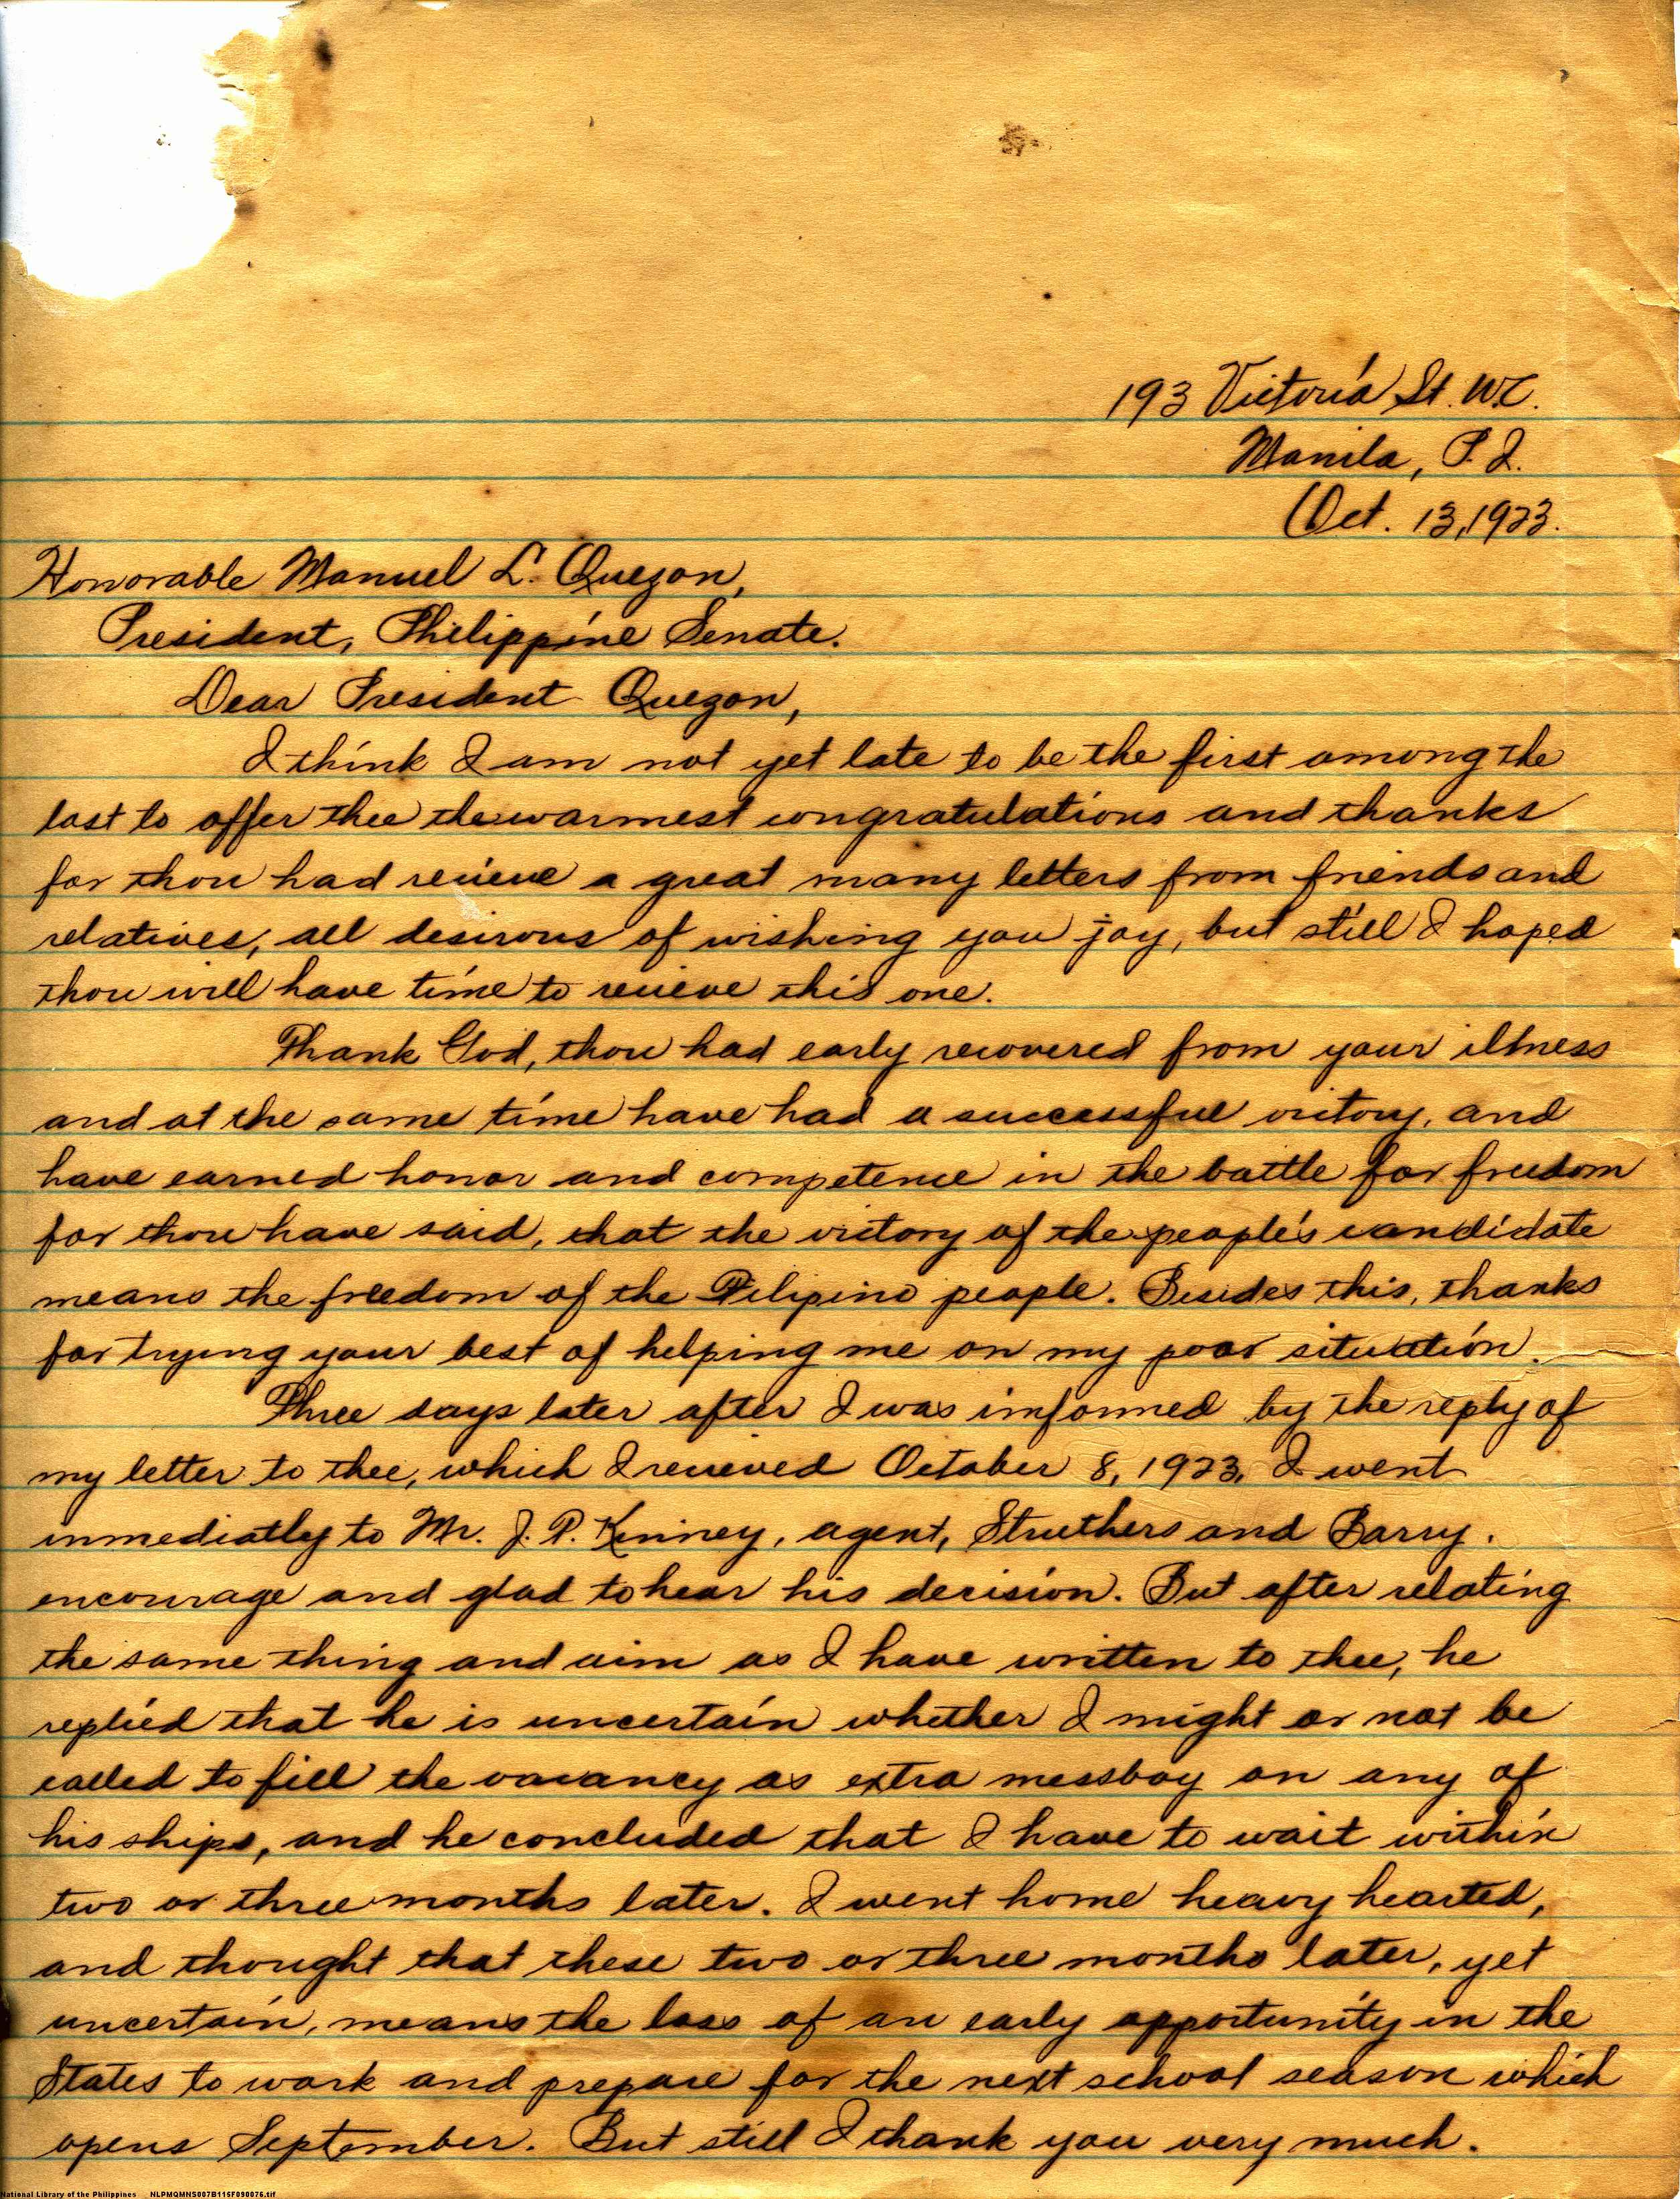 193 Victoria St. W.C.
Manila, P.I.
Oct. 13, 1923.
Honorable Manuel L. Quezon,
President, Philippine Senate.
Dear President Quezon,
I think I am not yet late to be the first among the
last to offer thee the warmest congratulations and thanks
for thou had recieve a great many letters from friends and
relatives, all desirous of wishing you joy, but still I hoped
thou will have time to recieve this one.
Thank God, thou had early recovered from your illness
and at the same time have had a successful victory, and
have earned honor and competence in the battle for freedom
for thou have said, that the victory of the people's candidate
means the freedom of the Pilipino people. Besides this, thanks
for trying your best of helping me on my poor situation.
Three days later after I was informed by the reply of
my letter to thee, which I recieved October 8, 1923, I went
immediatly to Mr. J. P. Kinney, agent, Struthers and Barry.
encourage and glad to hear his decision. But after relating
the same thing and aim as I have written to thee, he
replied that he is uncertain whether I might or not be
called to fill the vacancy as extra messboy on any of
his ships, and he concluded that I have to wait within
two or three months later. I went home heavy hearted,
and thought that these two or three months later, yet
uncertain, means the loss of an early opportunity in the
States to work and prepare for the next school season which
opens September. But still I thank you very much.
National Library of the Philippines NLPMQMNS007B115F090076.tif